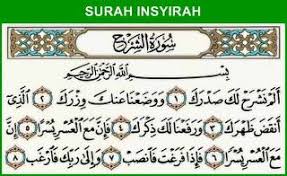 SURAH INSYIRAH
سُورَةُ الشَّرْحِ
بِسْمِ اللَّهِ الرَّحْمَٰنِ الرَّحِيمِ
أَلَمْ نَشْرَحْ لَكَ صَدْرَكَ ١ وَوَضَعْنَا عَنكَ وِزْرَكَ ٢ الَّذِي
أَنقَضَ ظَهْرَكَ ٣ وَرَفَعْنَا لَكَ ذِكْرَكَ ٤ فَإِنَّ مَعَ الْعُسْرِ يُسْرًا ٥ إِنَّ
مَعَ الْعُسْرِ يُسْرًا ٦ فَإِذَا فَرَغْتَ فَانصَبْ ٧ وَإِلَىٰ رَبِّكَ فَارْغَب ٨